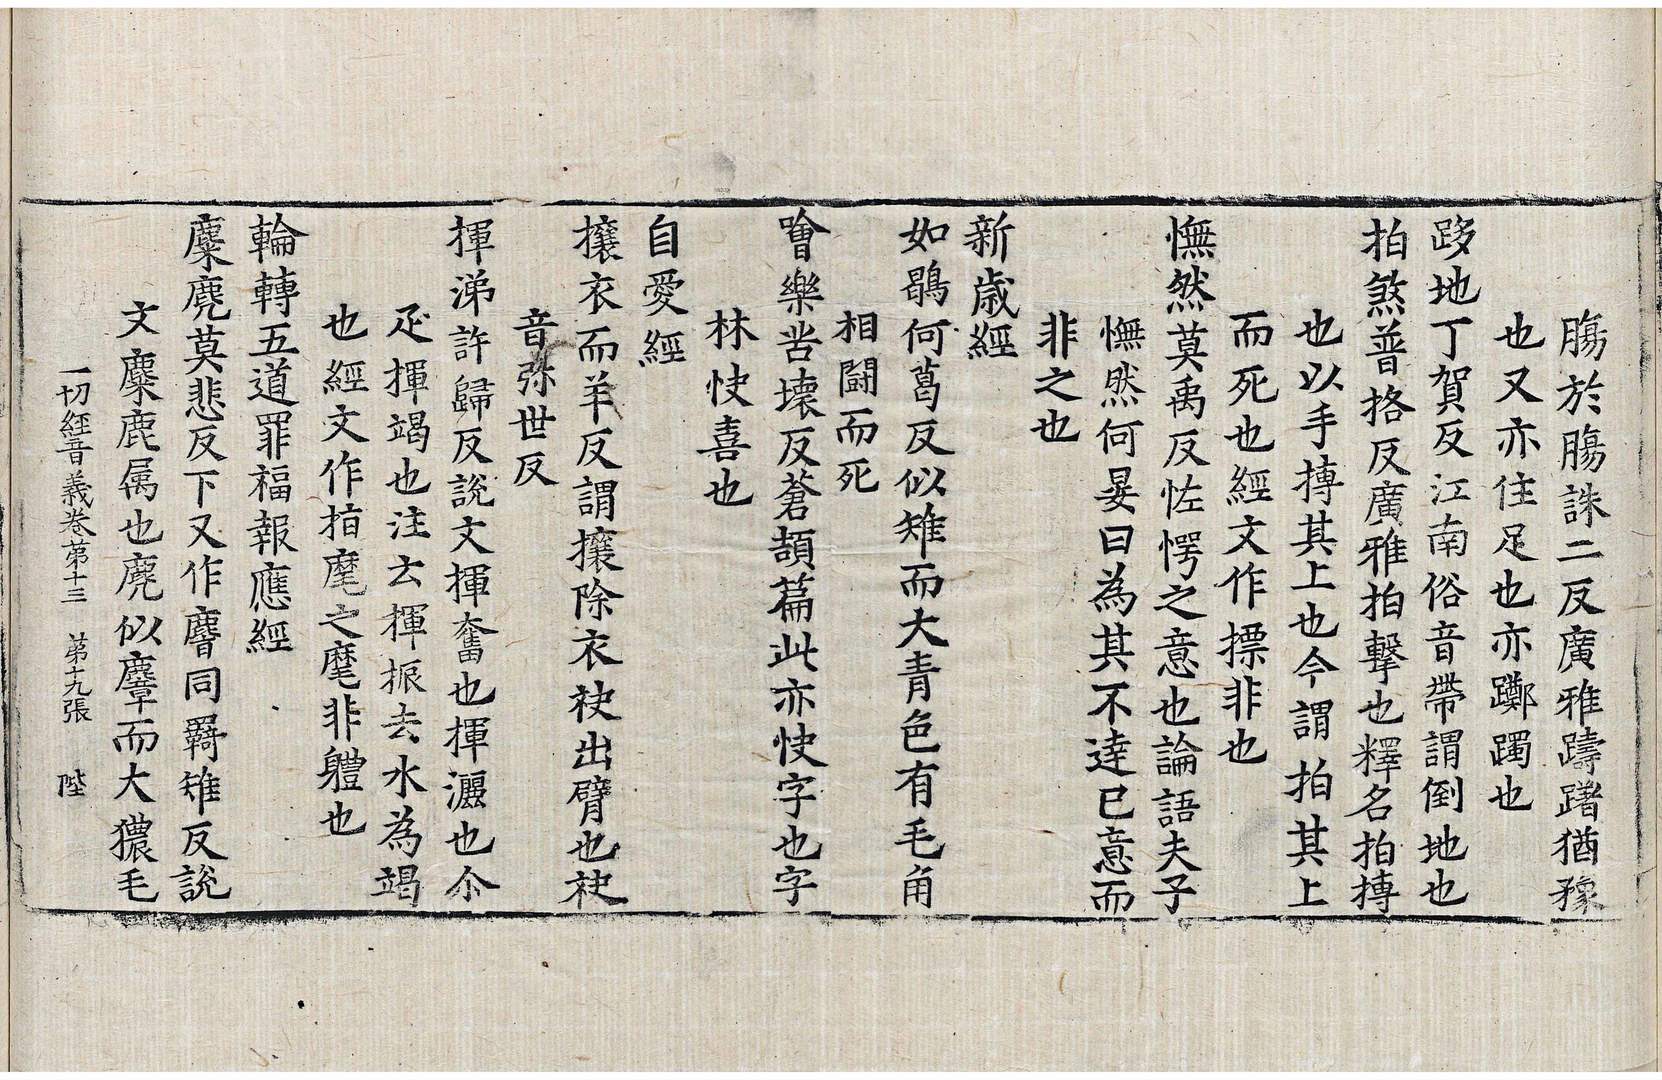 腸於腸誅二反廣雅躊躇猶豫
也又亦住足也亦躑躅也
跢地丁賀反江南俗音帶謂倒地也
拍煞普挌反廣雅拍擊也釋名拍搏
也以手摶其上也今謂拍其上
而死也經文作摽非也
憮然莫禹反怪愕之意也論語夫子
憮然何晏曰為其不達已意而
非之也
新歳經
如鶡何葛反似雉而大青色有毛角
相鬪而死
噲樂苦壊反蒼頡篇此亦快字也字
林快喜也
自愛經
攘衣而羊反謂攘除衣袂出臂也袂
音弥世反
揮涕許歸反說文揮奮也揮灑也尒
疋揮竭也注云揮振去水為竭
也經文作指麾之麾非軆也
輪轉五道罪福報應經
麋麂莫悲反下又作麔同羇雉反說
文麋鹿属也麂似麞而大猥毛
一切經音義卷苐十三　苐十九張　陛